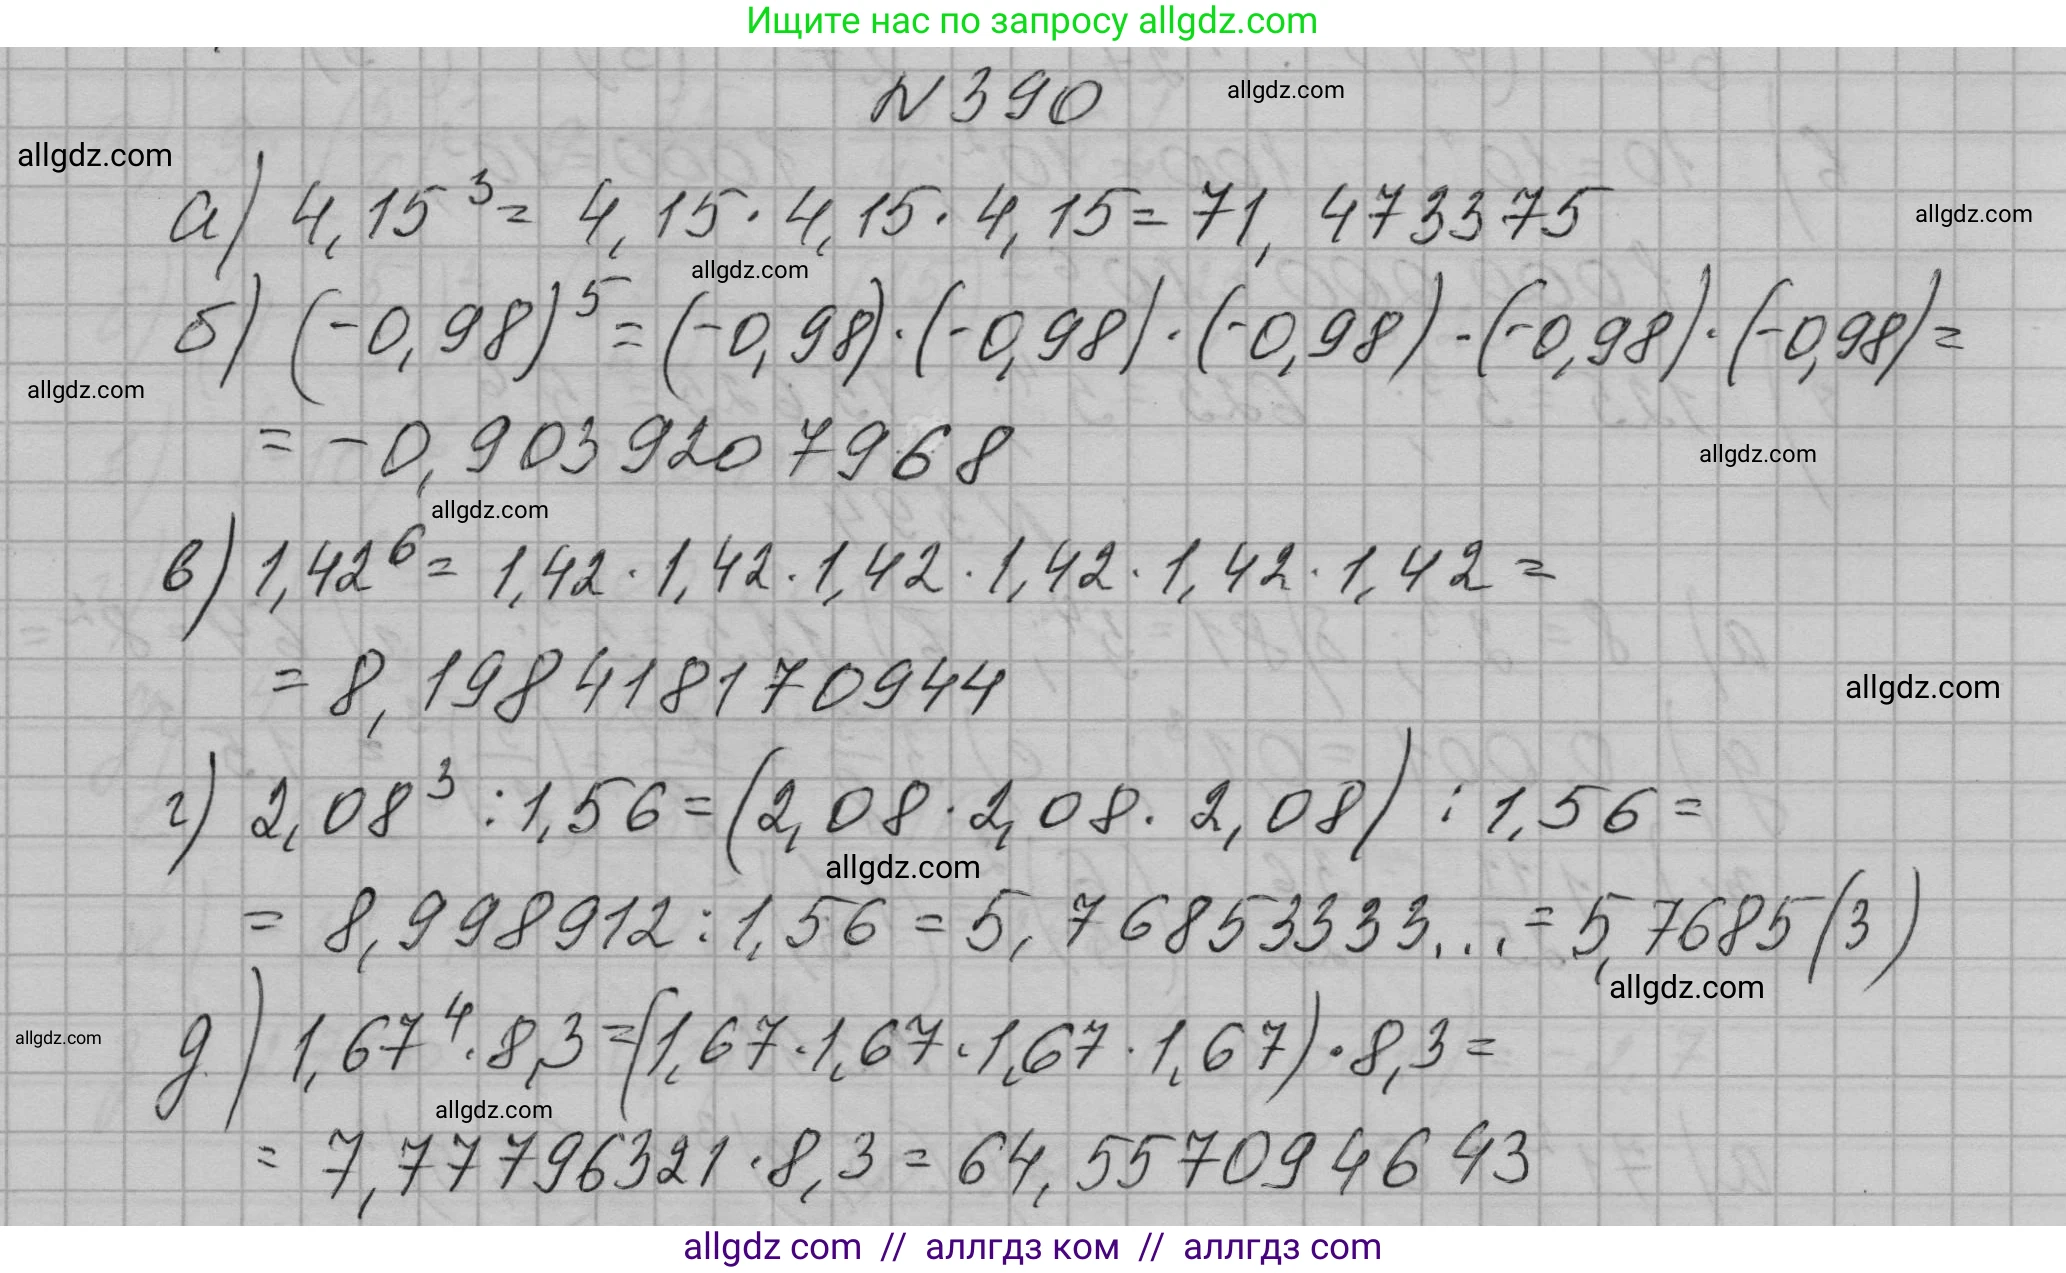 Ищите нас по запросу allgdz.com
N 390
allgdz.com
allgdz.com
а) 4,15³ = 4,15 · 4,15 · 4,15 = 71,473375
allgdz.com
allgdz.com
б) (-0,98)⁵ = (-0,98) · (-0,98) · (-0,98) · (-0,98) · (-0,98) =
allgdz.com
= -0,9039207968
allgdz.com
allgdz.com
в) 1,42⁶ = 1,42 · 1,42 · 1,42 · 1,42 · 1,42 · 1,42 =
= 8,198418170944
allgdz.com
г) 2,08³ : 1,56 = (2,08 · 2,08 · 2,08) : 1,56 =
allgdz.com
= 8,998912 : 1,56 = 5,76853333... = 5,7685(3)
allgdz.com
allgdz.com
д) 1,67⁴ · 8,3 = (1,67 · 1,67 · 1,67 · 1,67) · 8,3 =
allgdz.com
= 7,77796321 · 8,3 = 64,557094643
allgdz com // аллгдз ком // аллгдз com